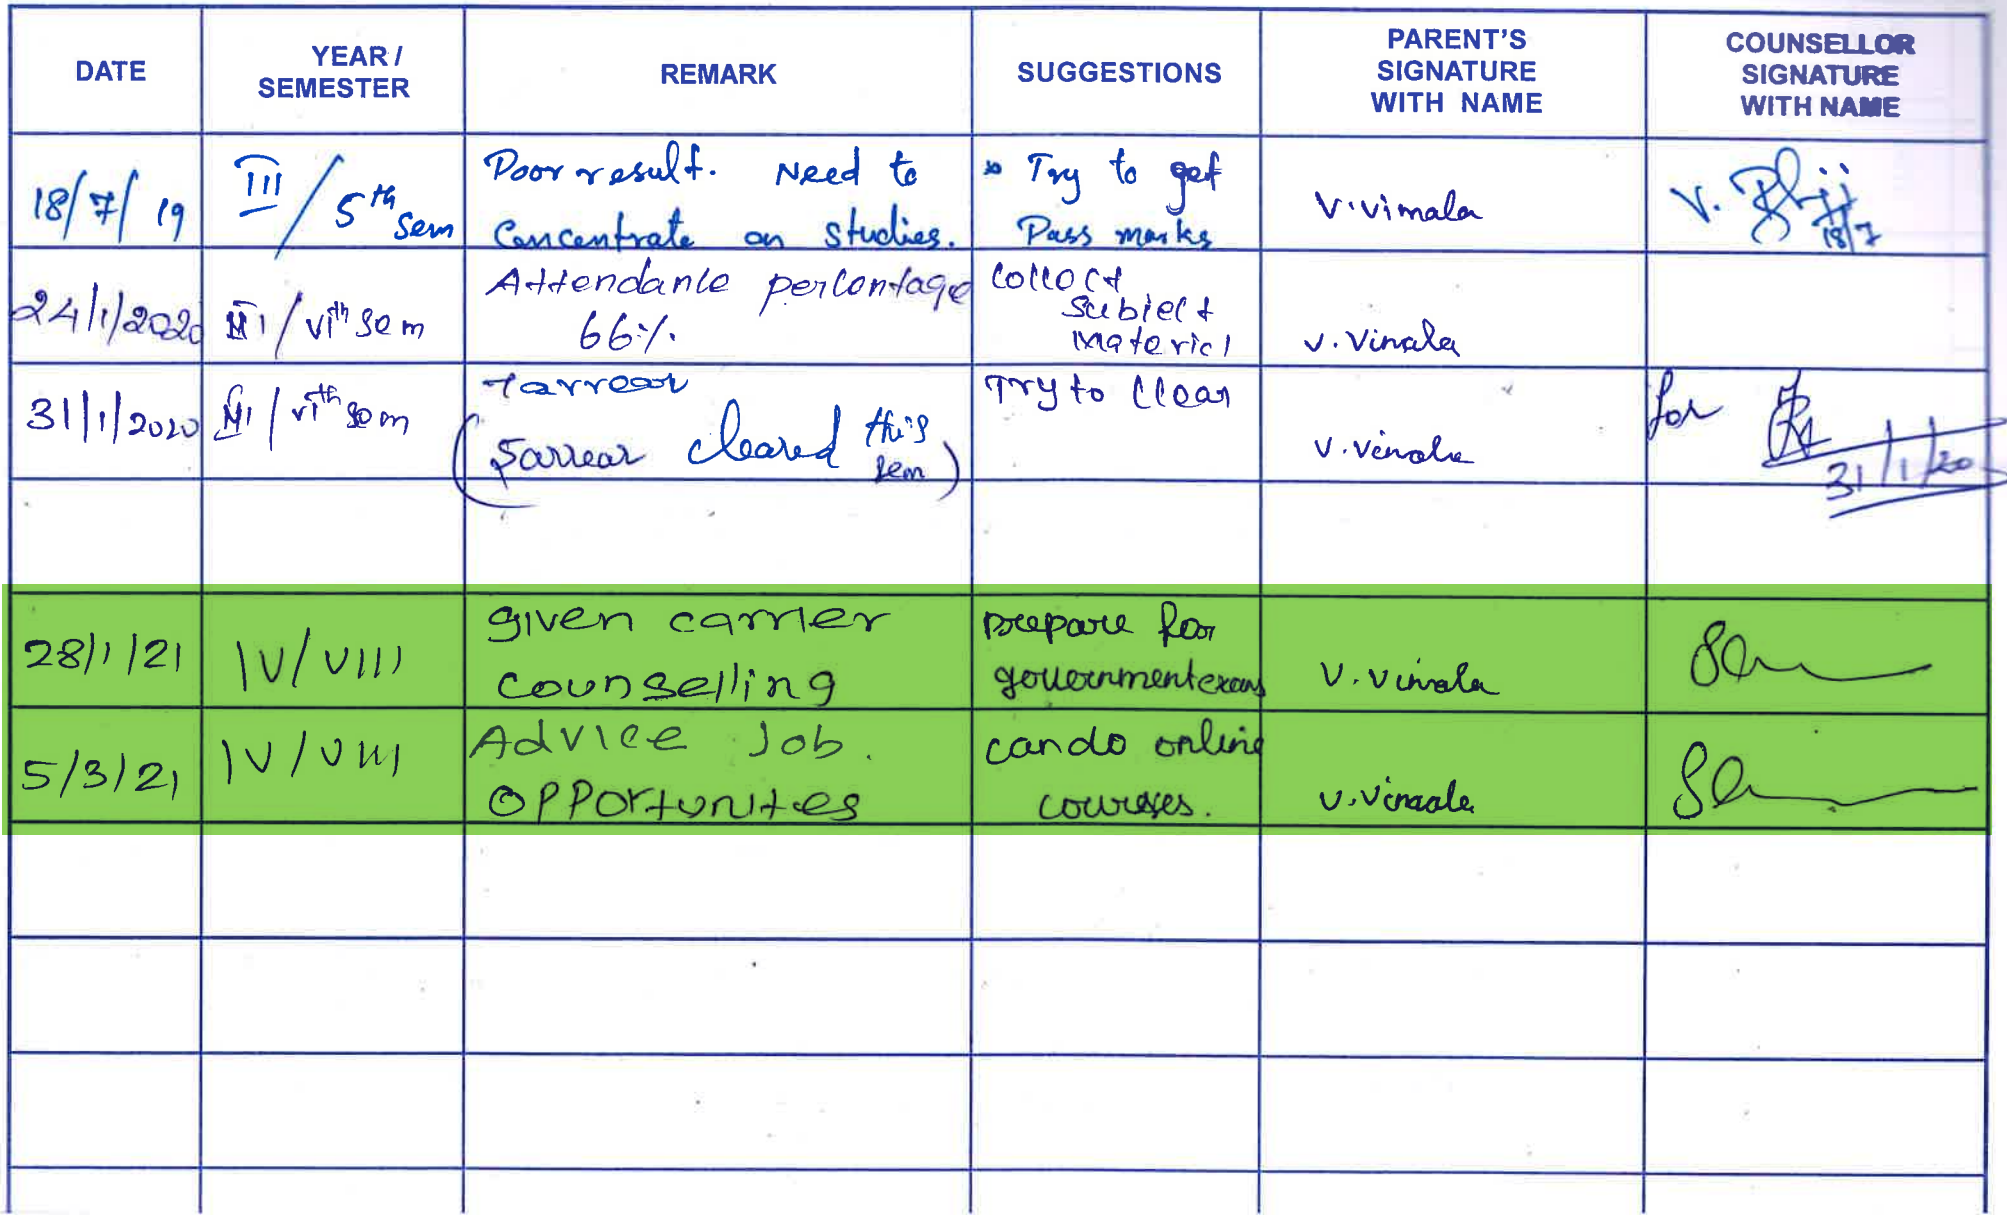 DATE
YEAR /
SEMESTER
REMARK
SUGGESTIONS
PARENT'S
SIGNATURE
WITH NAME
COUNSELLOR
SIGNATURE
WITH NAME
18/7/19
III / 5th sem
Poor result. Need to
Concentrate on studies.
Try to get
Pass marks
V.Vimala
V.
18/7
24/1/2020
III / VIth sem
Attendance percentage
66%.
Collect
Subject
Material
V.Vimala
31/1/2020
III / VIth sem
7arrear
(5arrear cleared this
sem)
Try to Clear
V.Vimala
for
31/1/20
28/1/21
IV/VIII
given carrier
counselling
prepare for
government exams
V.Vimala
5/3/21
IV/VIII
Advice Job.
OPPOrtunities
can do online
courses.
V.Vimala